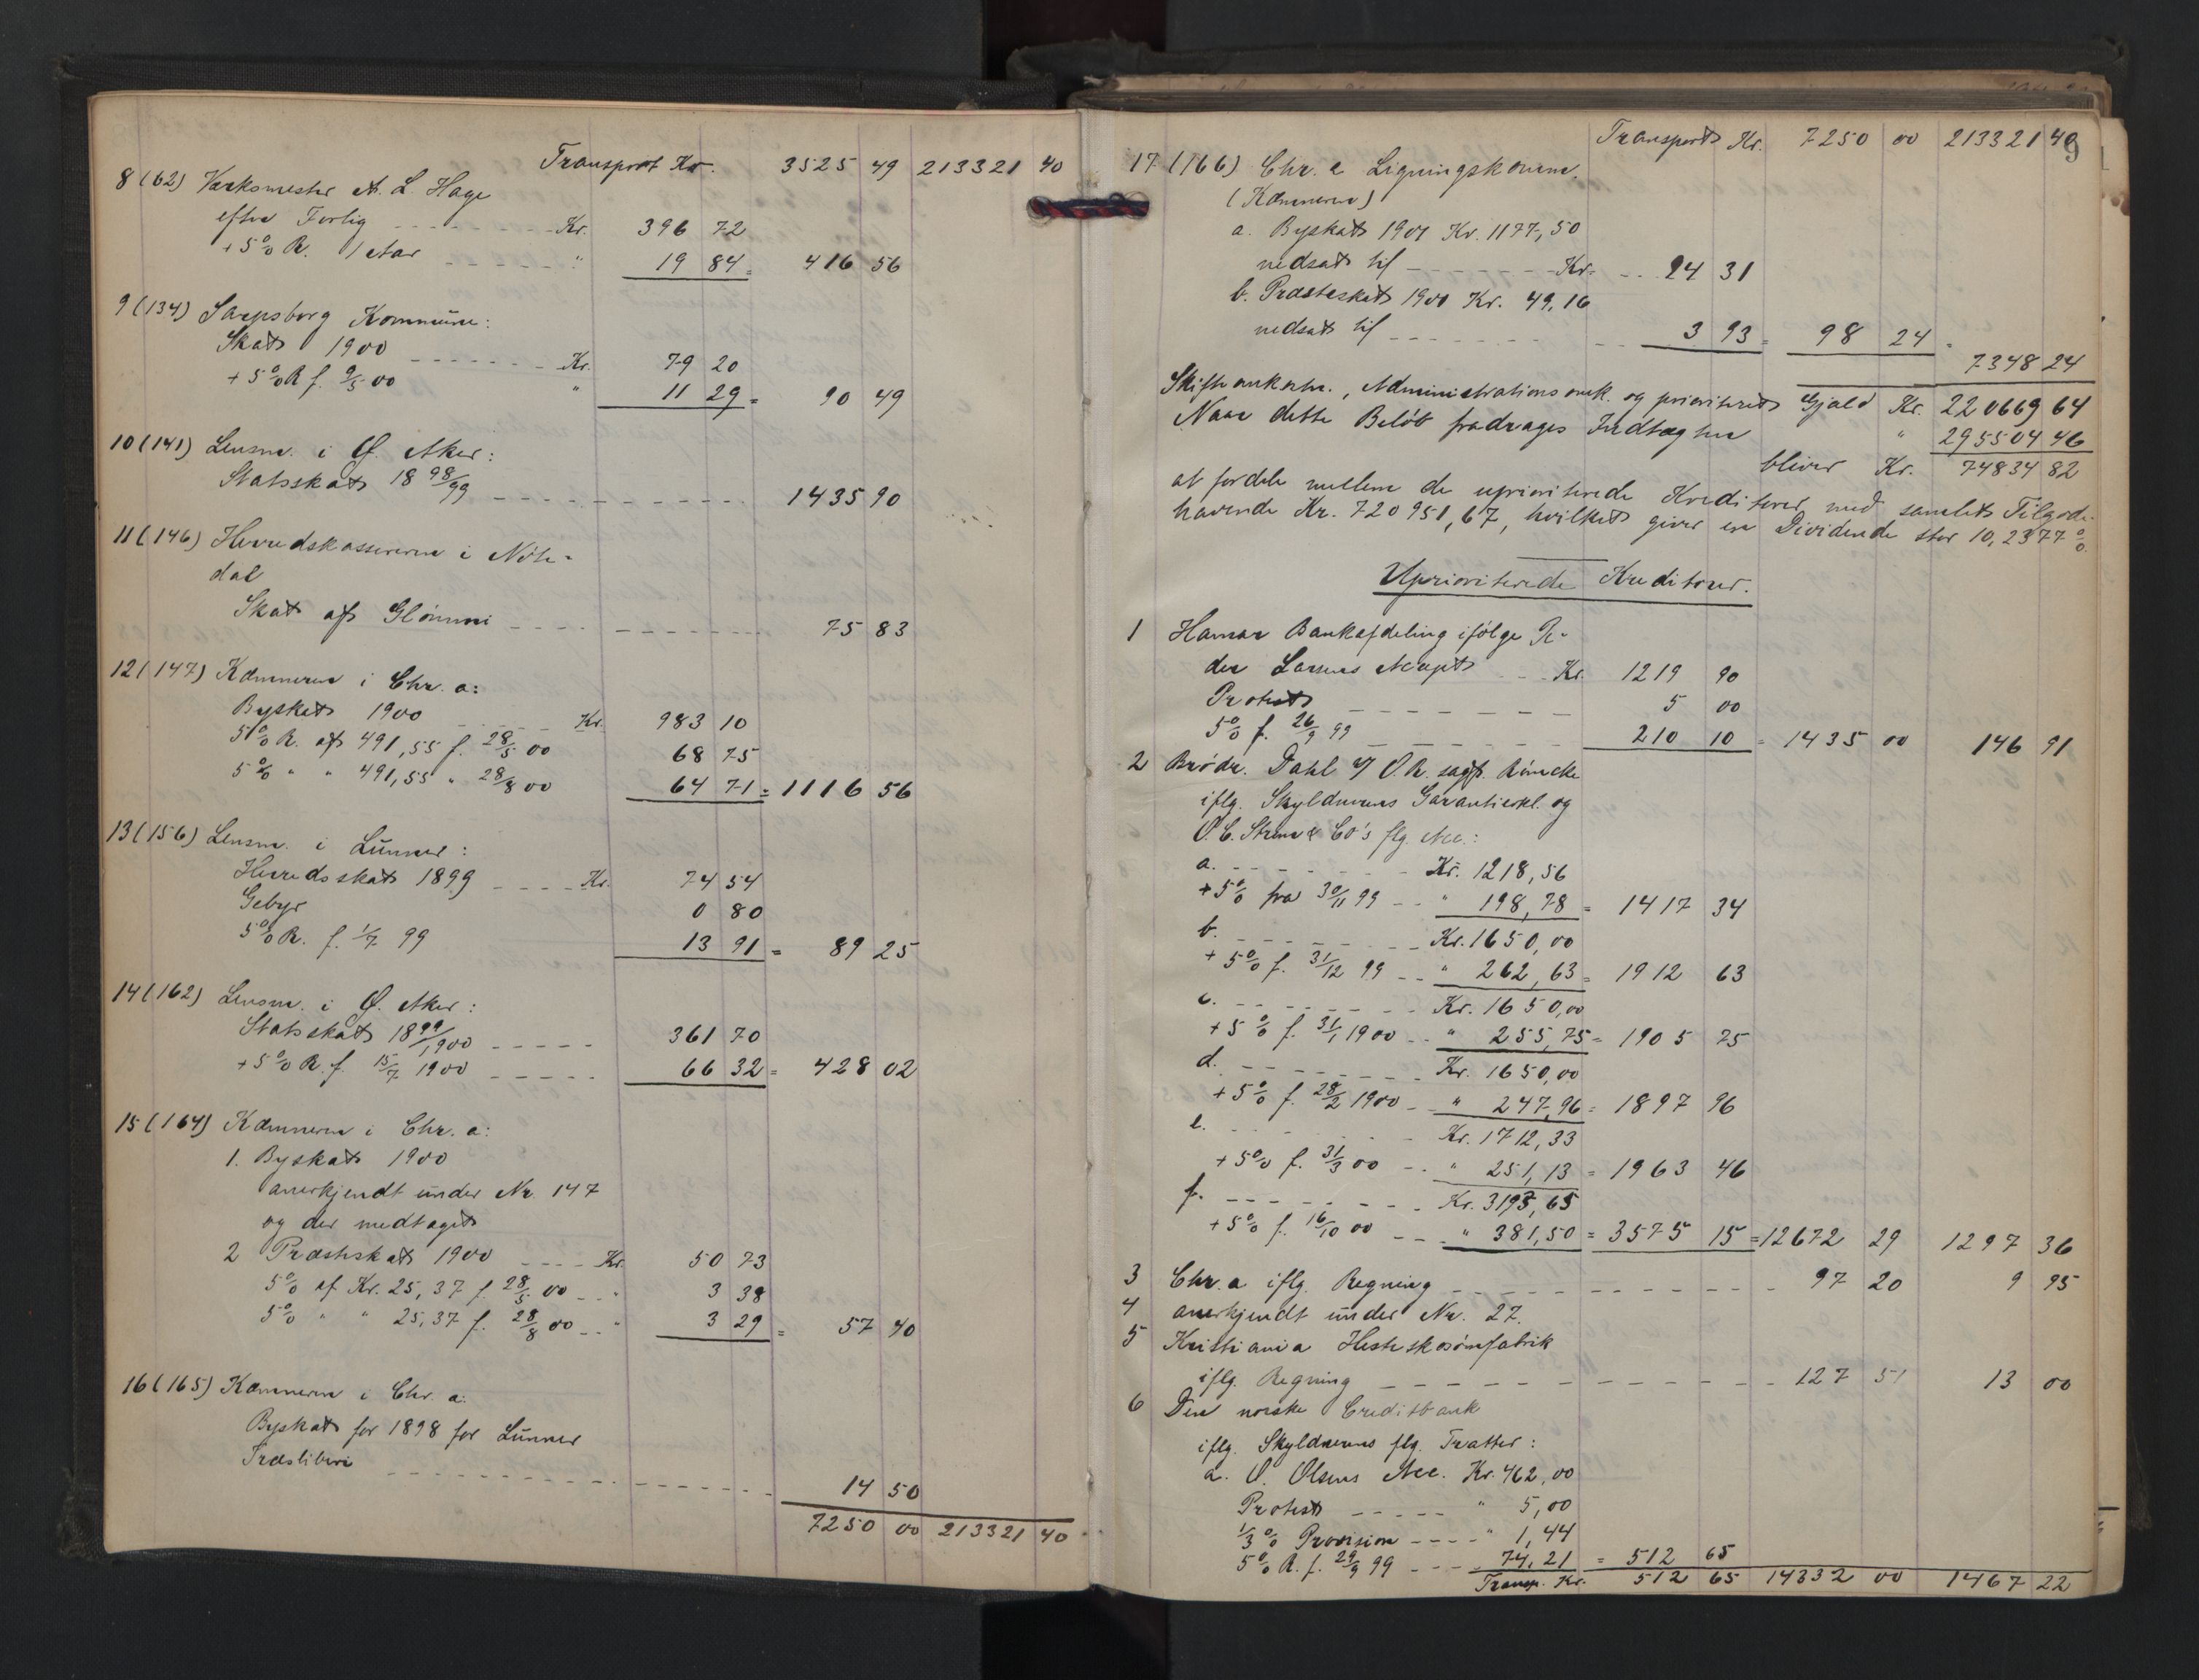 Transport Kr. 3525 49 213321 40
8 (62) Værksmester A. L. Hage
efter Forlig Kr. 396 72
+ 5% R. 1 Aar " 19 84 = 416 56
9 (134) Sarpsborg Kommune:
Skat 1900 Kr. 79 20
+ 5% R f. 9/5 00 " 11 29 = 90 49
10 (141) Lensm. i Ø. Aker:
Statsskat 1898/99 1435 90
11 (146) Herredskassereren i
dal
Skat af Glommi 75 83
12 (147) Kæmneren i Chr. a:
Byskat 1900 Kr. 983 10
5% R. af 491,55 f. 28/5 00 68 75
5% " " 491,55 " 28/8 00 64 71 = 1116 56
13 (156) Lensm. i Lunner:
Herredsskat 1899 Kr. 74 54
Gebyr 0 80
5% R. f. 1/7 99 13 91 = 89 25
14 (162) Lensm. i Ø. Aker:
Statsskat 1899/1900 361 70
+ 5% R. f. 15/7 1900 66 32 = 428 02
15 (164) Kæmneren i Chr. a:
1. Byskat 1900
anerkjendt under Nr. 147
og der medtaget
2 Præsteskat 1900 Kr. 50 73
5% af Kr. 25,37 f. 28/5 00 " 3 38
5% " " 25,37 f. 28/8 00 " 3 29 = 57 40
16 (165) Kæmneren i Chr. a:
Byskat for 1898 for Lunner
Træsliberi 14 50
7250 00 213321 40
9
Transport Kr. 7250 00 213321 40
17 (166) Chr. a Ligningskomm.
(Kæmneren)
a. Byskat 1901 Kr. 1177,50
nedsat til Kr. 94 31
b. Præsteskat 1901 Kr. 49,16
nedsat til 3 93 = 98 24 =
7348 24
Skifteomkostn., Administrationsomk. og prioriteret Gjæld Kr. 220669 64
Naar dette Beløb fradrages Indtægten " 295504 46
bliver Kr. 74834 82
at fordele mellem de uprioriterede Kreditorer med samlet Tilgode-
havende Kr. 720951,67, hvilket giver en Dividende stor 10,2377 %.
Uprioriterede Kreditorer.
1 Hamar Bankafdeling ifølge Pe-
der Larsens Accept Kr. 1219 90
Protest 5 00
5% f. 26/9 99 210 10 = 1435 00 146 91
2 Brødr. Dahl v/ O.R. sagf. Reincke
iflg. Skyldnerens Garantierkl. og
O. C. Strøm & Co's flg. Acc.:
a. Kr. 1218,56
+ 5% fra 30/11 99 " 198,78 = 1417 34
b. Kr. 1650,00
+ 5% f. 31/12 99 " 262,63 = 1912 63
c. Kr. 1650,00
+ 5% f. 31/1 1900 " 255,75 = 1905 75
d. Kr. 1650,00
+ 5% f. 28/2 1900 " 247,96 = 1897 96
e. Kr. 1712,33
+ 5% f. 31/3 00 " 251,13 = 1963 46
f. Kr. 3193,65
+ 5% f. 16/10 00 " 381,50 = 3575 15 = 12672 29 1297 36
3 Chr. a iflg. Regning 97 20 9 95
4 anerkjendt under Nr. 27.
5 Kristiania Hesteskosømfabrik
iflg. Regning 127 51 13 00
6 Den norske Creditbank
iflg. Skyldnerens flg. Tratter:
a. O. Olsens Acc. Kr. 462,00
Protest " 5,00
1/3 % Provision " 1,44
5% R. f. 29/9 99 74,21 = 512 65
Transp. Kr. 512 65 14332 00 1467 22